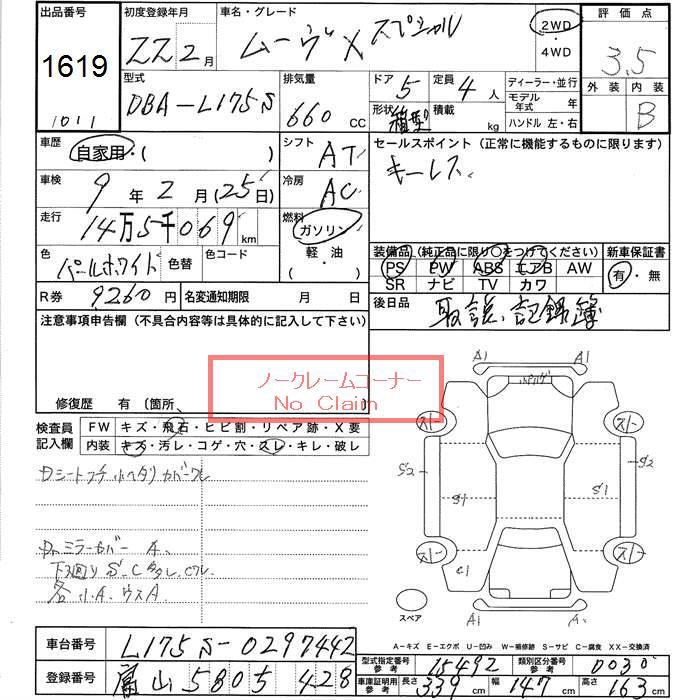 出品番号
1619
1011
初度登録年月
22 2月
車名・グレード
ムーヴ X スペシャル
2WD
・
4WD
評価点
3.5
外装 内装
B
型式
DBA-L175S
排気量
660 cc
ドア 5
定員 4 人
形状 箱型
積載 kg
ディーラー・並行
モデル年式 年
ハンドル 左・右
車歴
自家用・( )
シフト AT
セールスポイント(正常に機能するものに限ります)
キーレス
車検
9 年 2 月(25日)
冷房 AC
走行
14万5千069 km
燃料
ガソリン
軽・油
・( )
色
パールホワイト
色替
色コード
装備品(純正品に限り○をつけてください)
PS PW ABS エアB AW
SR ナビ TV カワ
新車保証書
有・無
R券 9260円
名変通知期限 月 日
後日品
取説、記録簿
注意事項申告欄(不具合内容等は具体的に記入して下さい)
ノークレームコーナー
No Claim
修復歴 有〔箇所 〕
検査員記入欄
FW キズ・飛石・ヒビ割・リペア跡・X要
内装 キズ・汚レ・コゲ・穴・スレ・キレ・破レ
Dシートフチ小ヘタリ カバーワレ
Drミラーカバー A、
下廻り S、C多シ、Cワレ
各小A、ウスA
A1 A1
スレー スレー
S2 S2
S1 S1
スレー スレー
C1
A1 A1
スペア
A-キズ E-エクボ U-凹み W-補修跡 S-サビ C-腐食 XX-交換済
車台番号
L175S-0297442
登録番号
富山 580 る 428
型式指定番号参考 15492
類別区分番号参考 0030
車庫証明用参考 長さ 339 cm 幅 147 cm 高さ 163 cm